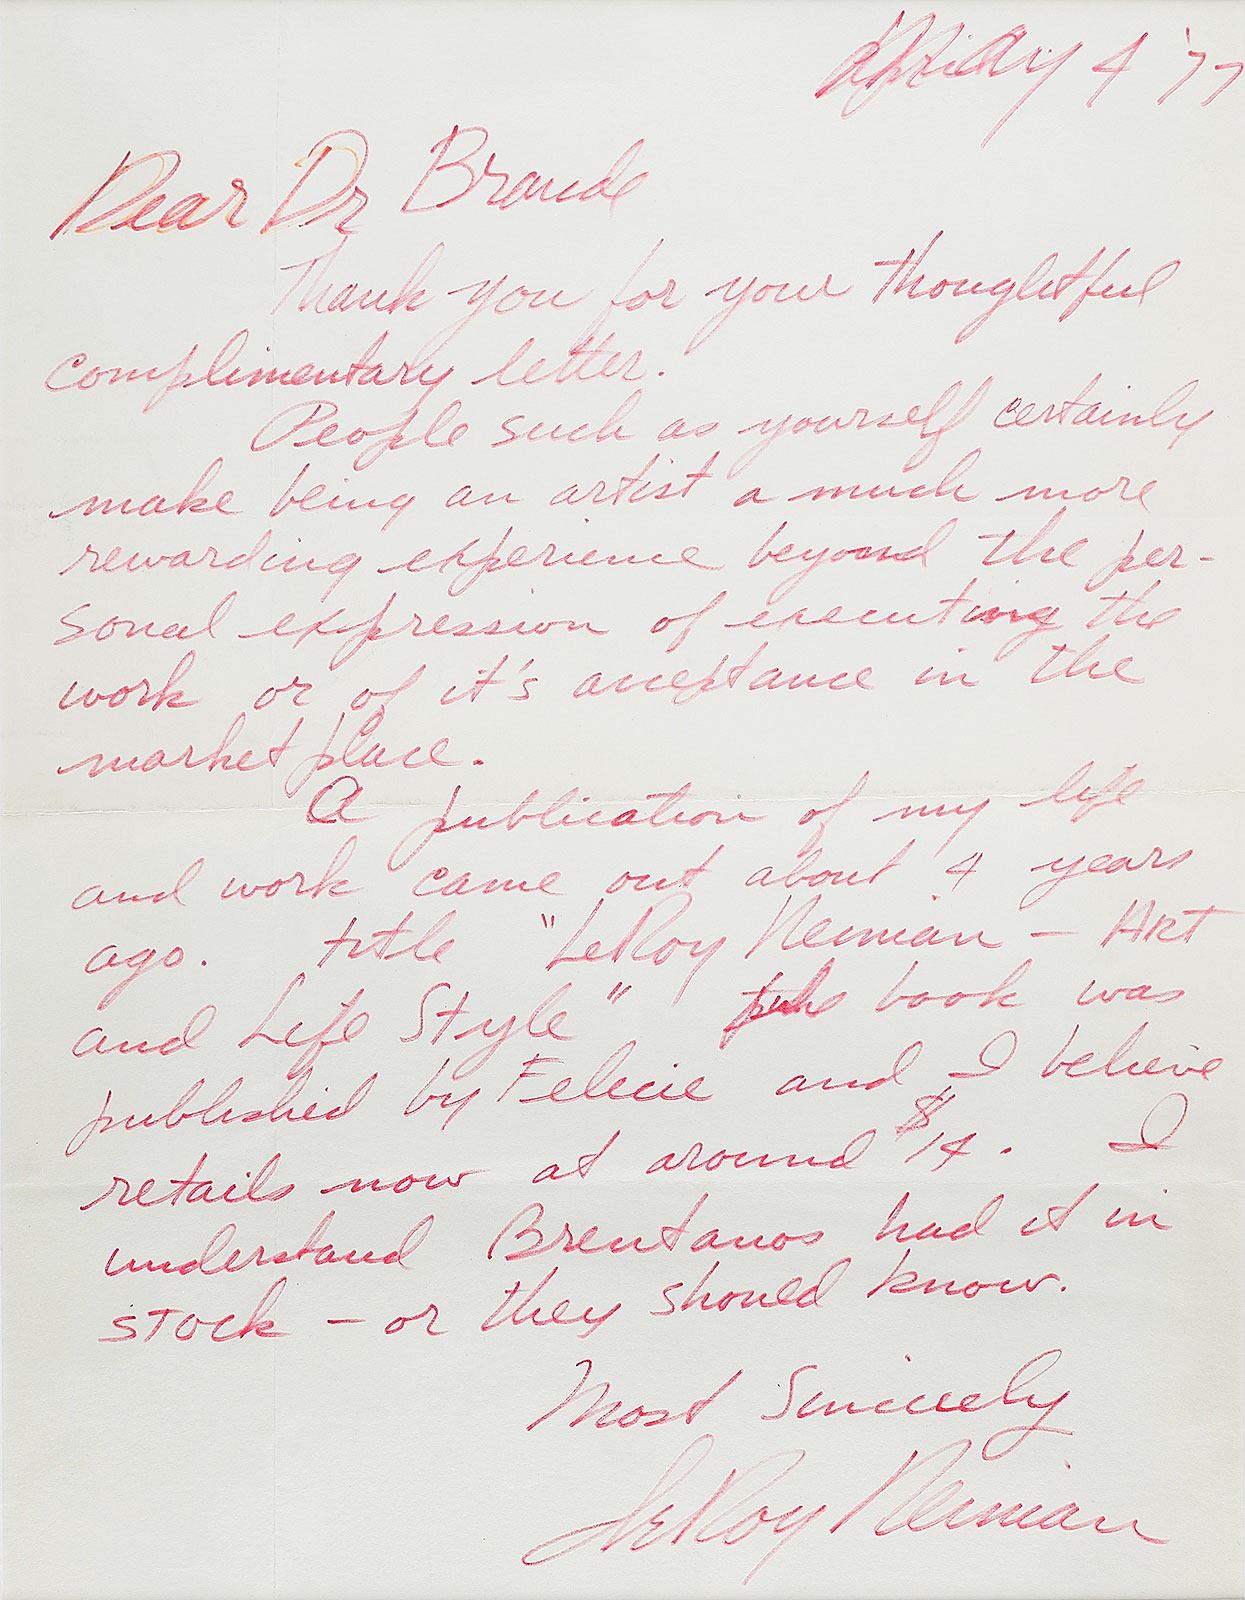 May 4 '77
Dear Dr Braude
Thank you for your thoughtful
complimentary letter.
People such as yourself certainly
make being an artist a much more
rewarding experience beyond the per-
sonal expression of executing the
work or of it's acceptance in the
market place.
A publication of my life
and work came out about 4 years
ago. title "LeRoy Neiman - ART
and Life Style" book was
published by Felicie and I believe
retails now at around $14. I
understand Brentanos had it in
stock - or they should know.
Most Sincerely
LeRoy Neiman